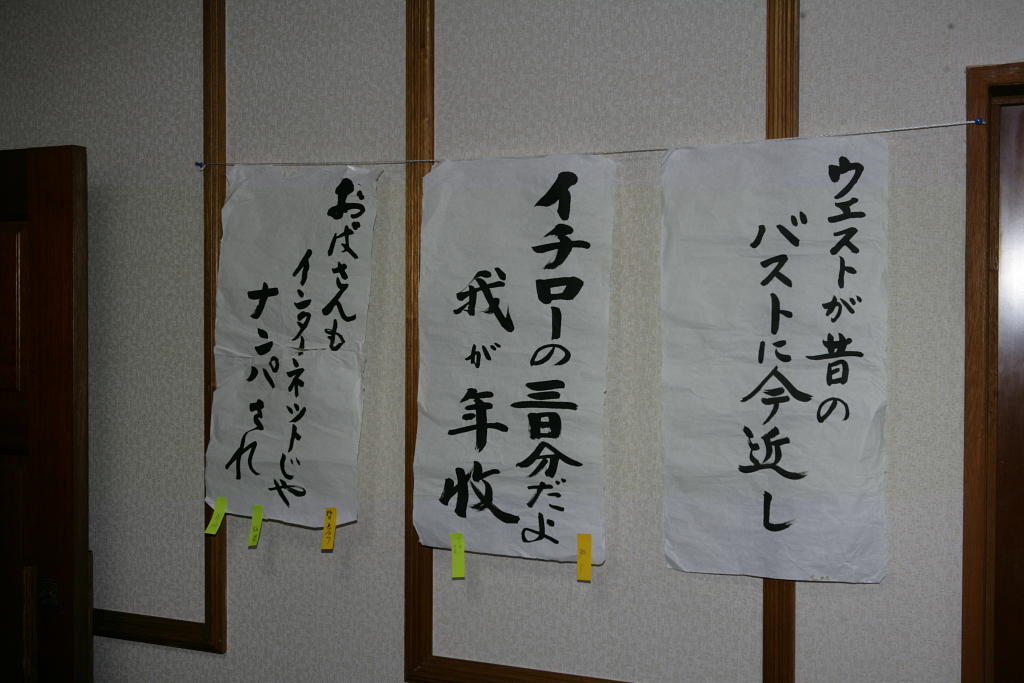 ウエストが昔の
バストに今近し
イチローの三日分だよ
我が年収
おばさんも
インターネットじゃ
ナンパされ